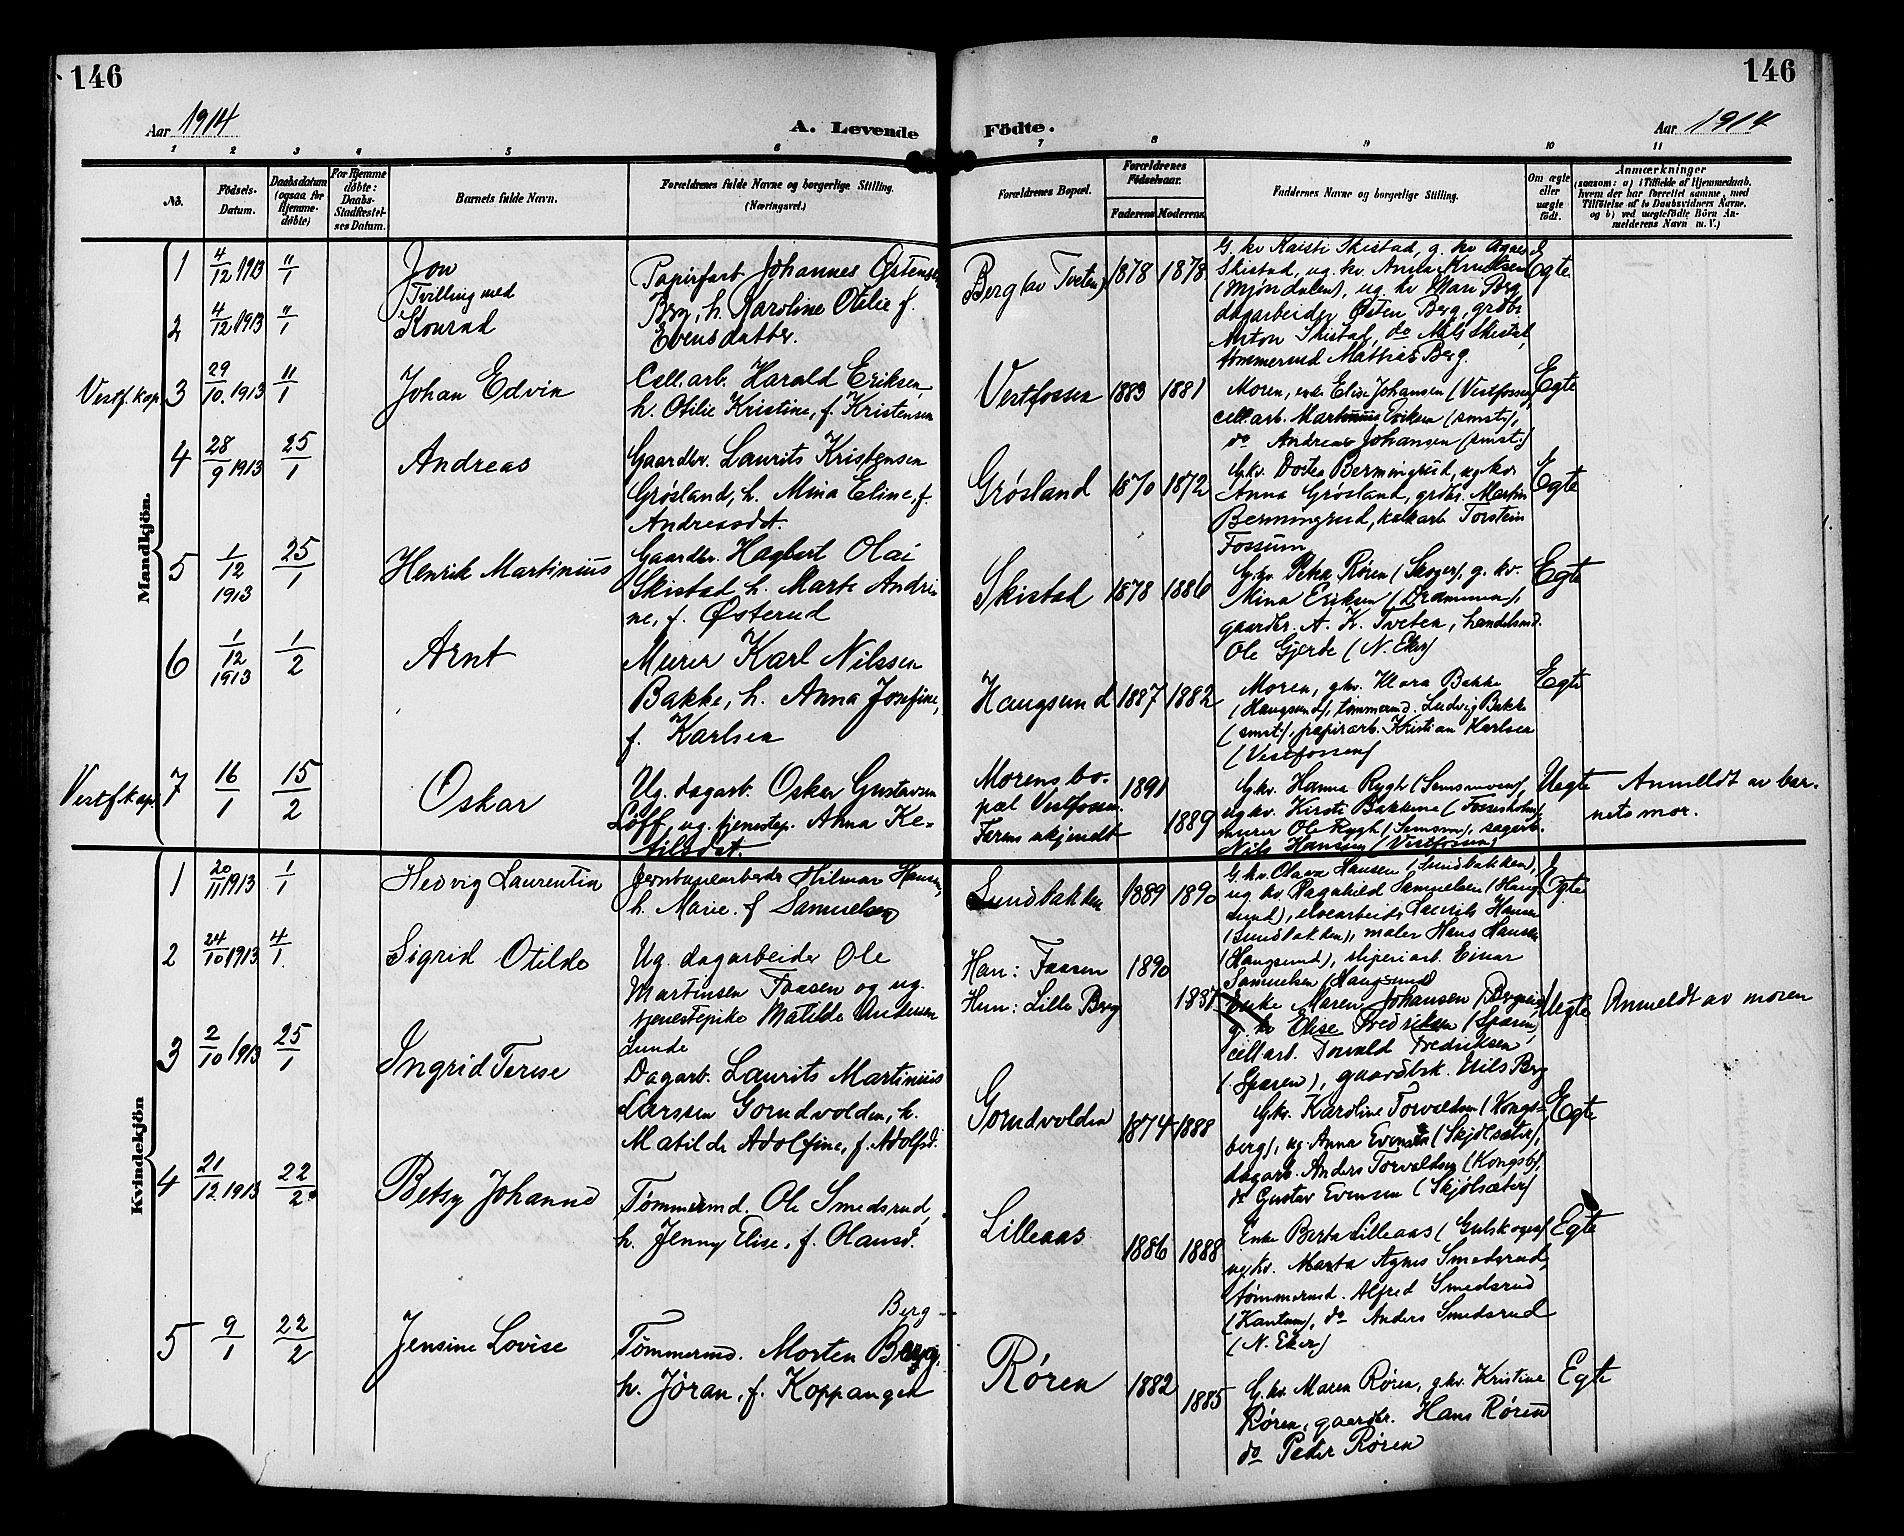 146
146
Aar 1914
A. Levende Födte.
Aar 1914
1 2 3 4 5 6 7 8 9 10 11
No.
Födsels-Datum.
Daabsdatum (ogsaa for Hjemme-döbte)
For Hjemme döbte: Daabs-Stadfæstel-ses Datum.
Barnets fulde Navn.
Forældrenes fulde Navne og borgerlige Stilling.
(Næringsvei.)
Forældrenes Bopæl.
Forældrenes Födselsaar.
Faderens Moderens
Faddernes Navne og borgerlige Stilling.
Om ægte eller uægte födt.
Anmærkninger
(saasom: a) i Tilfælde af Hjemmedaab, hvem der har forrettet samme, med Tilföielse af to Daabsvidners Navne, og b) ved uægtefödte Börn Anmelderens Navn m. V.)
Mandkjön.
1 4/12 1913 11/1 Jon
Tvilling med
Papirfarb. Johannes Østensen
Berg, h. Karoline Otilie f.
Evensdatter.
Berg (av Tveten) 1878 1878
G. kv. Kaisti Skistad, g. kv. Agnes
Skistad, ug. kv. Anna Knudsen
(Mjøndalen), ug. kv. Mari Berg
dagarbeider Østen Berg, grdbr.
Anton Skistad, do Nils Skistad,
tømmermd Mathias Berg.
Egte
2 4/12 1913 11/1 Konrad
Vestf. kap. 3 29/10 1913 11/1 Johan Edvin
Cell.arb. Harald Eriksen,
h. Otilie Kristine, f. Kristensen
Vestfossen 1883 1881
Moren, enke Elise Johansen (Vestfossen),
cell.arb. Martinius Eriksen (smst),
do Andreas Johansen (smst.)
Egte
4 28/9 1913 25/1 Andreas
Gaardbr. Laurits Kristensen
Grøsland, h. Mina Eline, f.
Andreasdat.
Grøsland 1870 1872
G.kv. Dortea Bermingrud, ug.kv.
Anna Grøsland, grdbr. Martin
Bermingrud, kalkarb. Torstein
Fossum
Egte
5 1/12 1913 25/1 Henrik Martinius
Gaardbr. Hagbart Olai
Skistad h. Marte Andri
ne, f. Østerud
Skistad 1878 1886
G.kv. Petra Røren (Skoger), g. kv.
Mina Eriksen (Drammen),
gaardbr. A. K. Tveten, handelsmd.
Ole Gjerde (N. Eker)
Egte
6 1/12 1913 1/2 Arnt
Murer Karl Nilssen
Bakke, h. Anna Josefine,
f. Karlsen
Haugsund 1887 1882
Moren, gkv. Klara Bakke
(Haugsund), tømmermd. Ludvig Bakke
(smst), papirarb. Kristian Karlsen
(Vestfossen)
Egte
Vestf kap 7 16/1 15/2 Oskar
Ug. dagarb. Oskar Gustavsen
Löff, ug. tjenestep. Anna Ke-
tilsdat.
Morens bo-
pæl Vestfossen.
Farens ukjendt
1891 1889
G.kv. Hanna Rygh (Semsmoen),
ug.kv. Kirsti Bakkene (Fossesholm),
murer Ole Rygh (Semsm), sagarb.
Nils Hansen (Vestfossen)
Uegte
Anmeldt av bar-
nets mor.
Kvindekjön
1 20/11 1913 1/1 Hedvig Laurentia
Jernbanearbeider Hilmar Hansen,
h. Marie f. Samuelsen
Sundbakken 1889 1890
G. kv. Olava Hansen (Sundbakken),
ug kv. Ragnhild Samuelsen (Haug
sund), elvearbeider Laurits Hansen
(Sundbakken), maler Hans Hansen
(Haugsund), sliperiarb. Einar
Samuelsen (Haugsund)
Egte
2 24/10 1913 4/1 Sigrid Otilde
Ug. dagarbeider Ole
Martinsen Faasen og ug.
tjenestepike Matilde Andersen
Lunde
Han: Faasen
Hun: Lille Berg
1890 1887
Enke Maren Johansen (Bergsrig)
g. kv Elise Fredriksen (Sparen),
cellarb. Torvald Fredriksen
(Sparen), gaardbk. Nils Berg
Uegte
Anmeldt av moren
3 2/10 1913 25/1 Ingrid Terese
Dagarb. Laurits Martinius
Larssen Gomdvolden, h.
Matilde Adolfine, f. Adolfsd.
Gomdvolden 1874 1888
G.kv. Karoline Torvaldsen (Kongs-
berg), ug Anna Evensen (Skjølsæter),
dagarb. Anders Torvaldsen (Kongsb),
do Gustav Evensen (Skjølsæter)
Egte
4 21/12 1913 22/2 Betsy Johanne
Tømmermd. Ole Smedsrud,
h. Jenny Elise, f. Olausd.
Lilleaas 1886 1888
Enke Berta Lilleaas (Gulskogen)
ug.kv. Marta Agnes Smedsrud,
tømmermd. Alfred Smedsrud
(Kantum), do Anders Smedsrud
(N. Eker)
Egte
5 9/1 22/2 Jensine Lovise
Berg
Tømmermd. Morten Berg,
h. Jøran, f. Koppangen
Røren 1882 1885
G.kv. Maren Røren, gkv. Kristine
Røren, gaardbr. Hans Røren
do Peder Røren
Egte